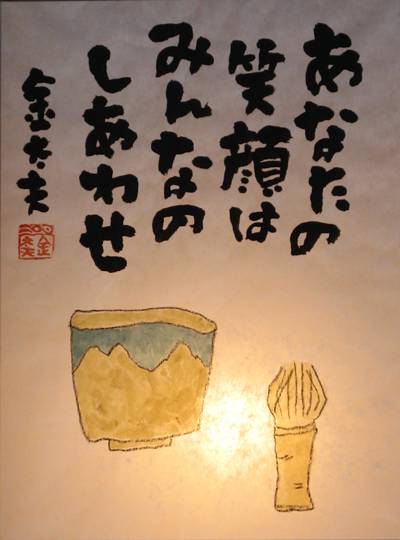 あなたの
笑顔は
みんなの
しあわせ
金太夫